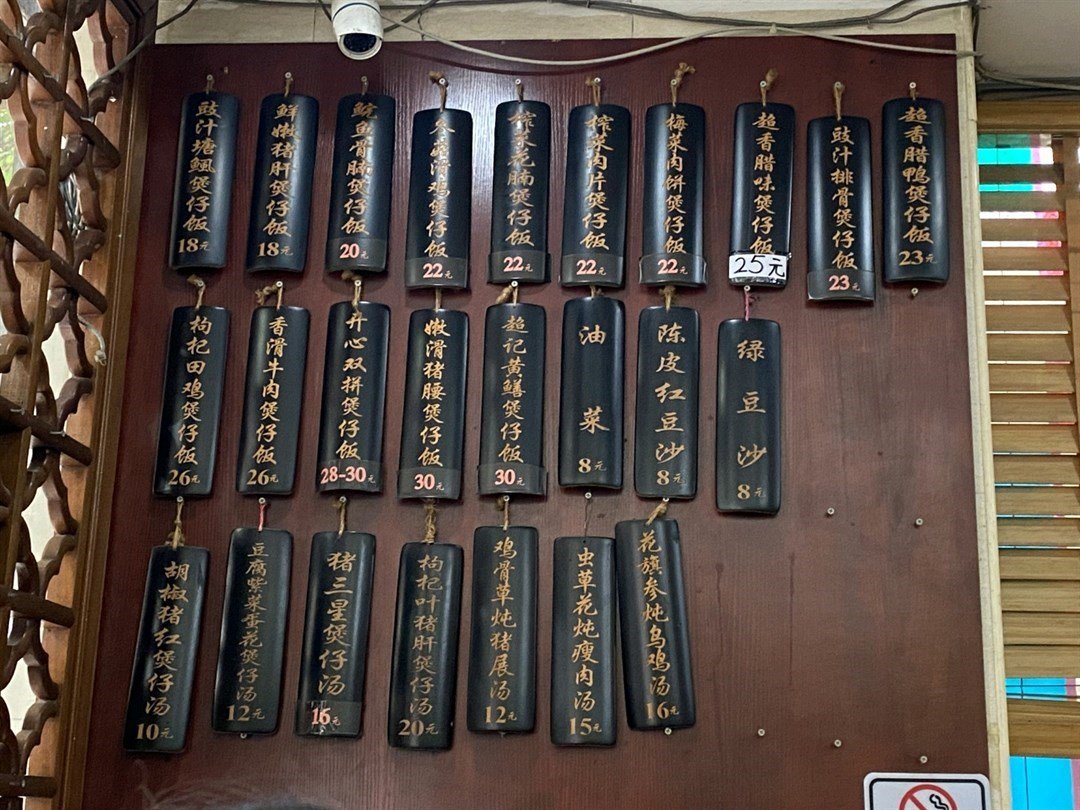 豉汁塘鲺煲仔饭 18元
鲜嫩猪肝煲仔饭 18元
鲩鱼骨腩煲仔饭 20元
冬菇滑鸡煲仔饭 22元
榨菜花腩煲仔饭 22元
榨菜肉片煲仔饭 22元
梅菜肉饼煲仔饭 22元
超香腊味煲仔饭 25元
豉汁排骨煲仔饭 23元
超香腊鸭煲仔饭 23元
枸杞田鸡煲仔饭 26元
香滑牛肉煲仔饭 26元
开心双拼煲仔饭 28-30元
嫩滑猪腰煲仔饭 30元
超记黄鳝煲仔饭 30元
油菜 8元
陈皮红豆沙 8元
绿豆沙 8元
胡椒猪红煲仔汤 10元
豆腐紫菜蛋花煲仔汤 12元
猪三星煲仔汤 16元
枸杞叶猪肝煲仔汤 20元
鸡骨草炖猪展汤 12元
虫草花炖瘦肉汤 15元
花旗参炖乌鸡汤 16元